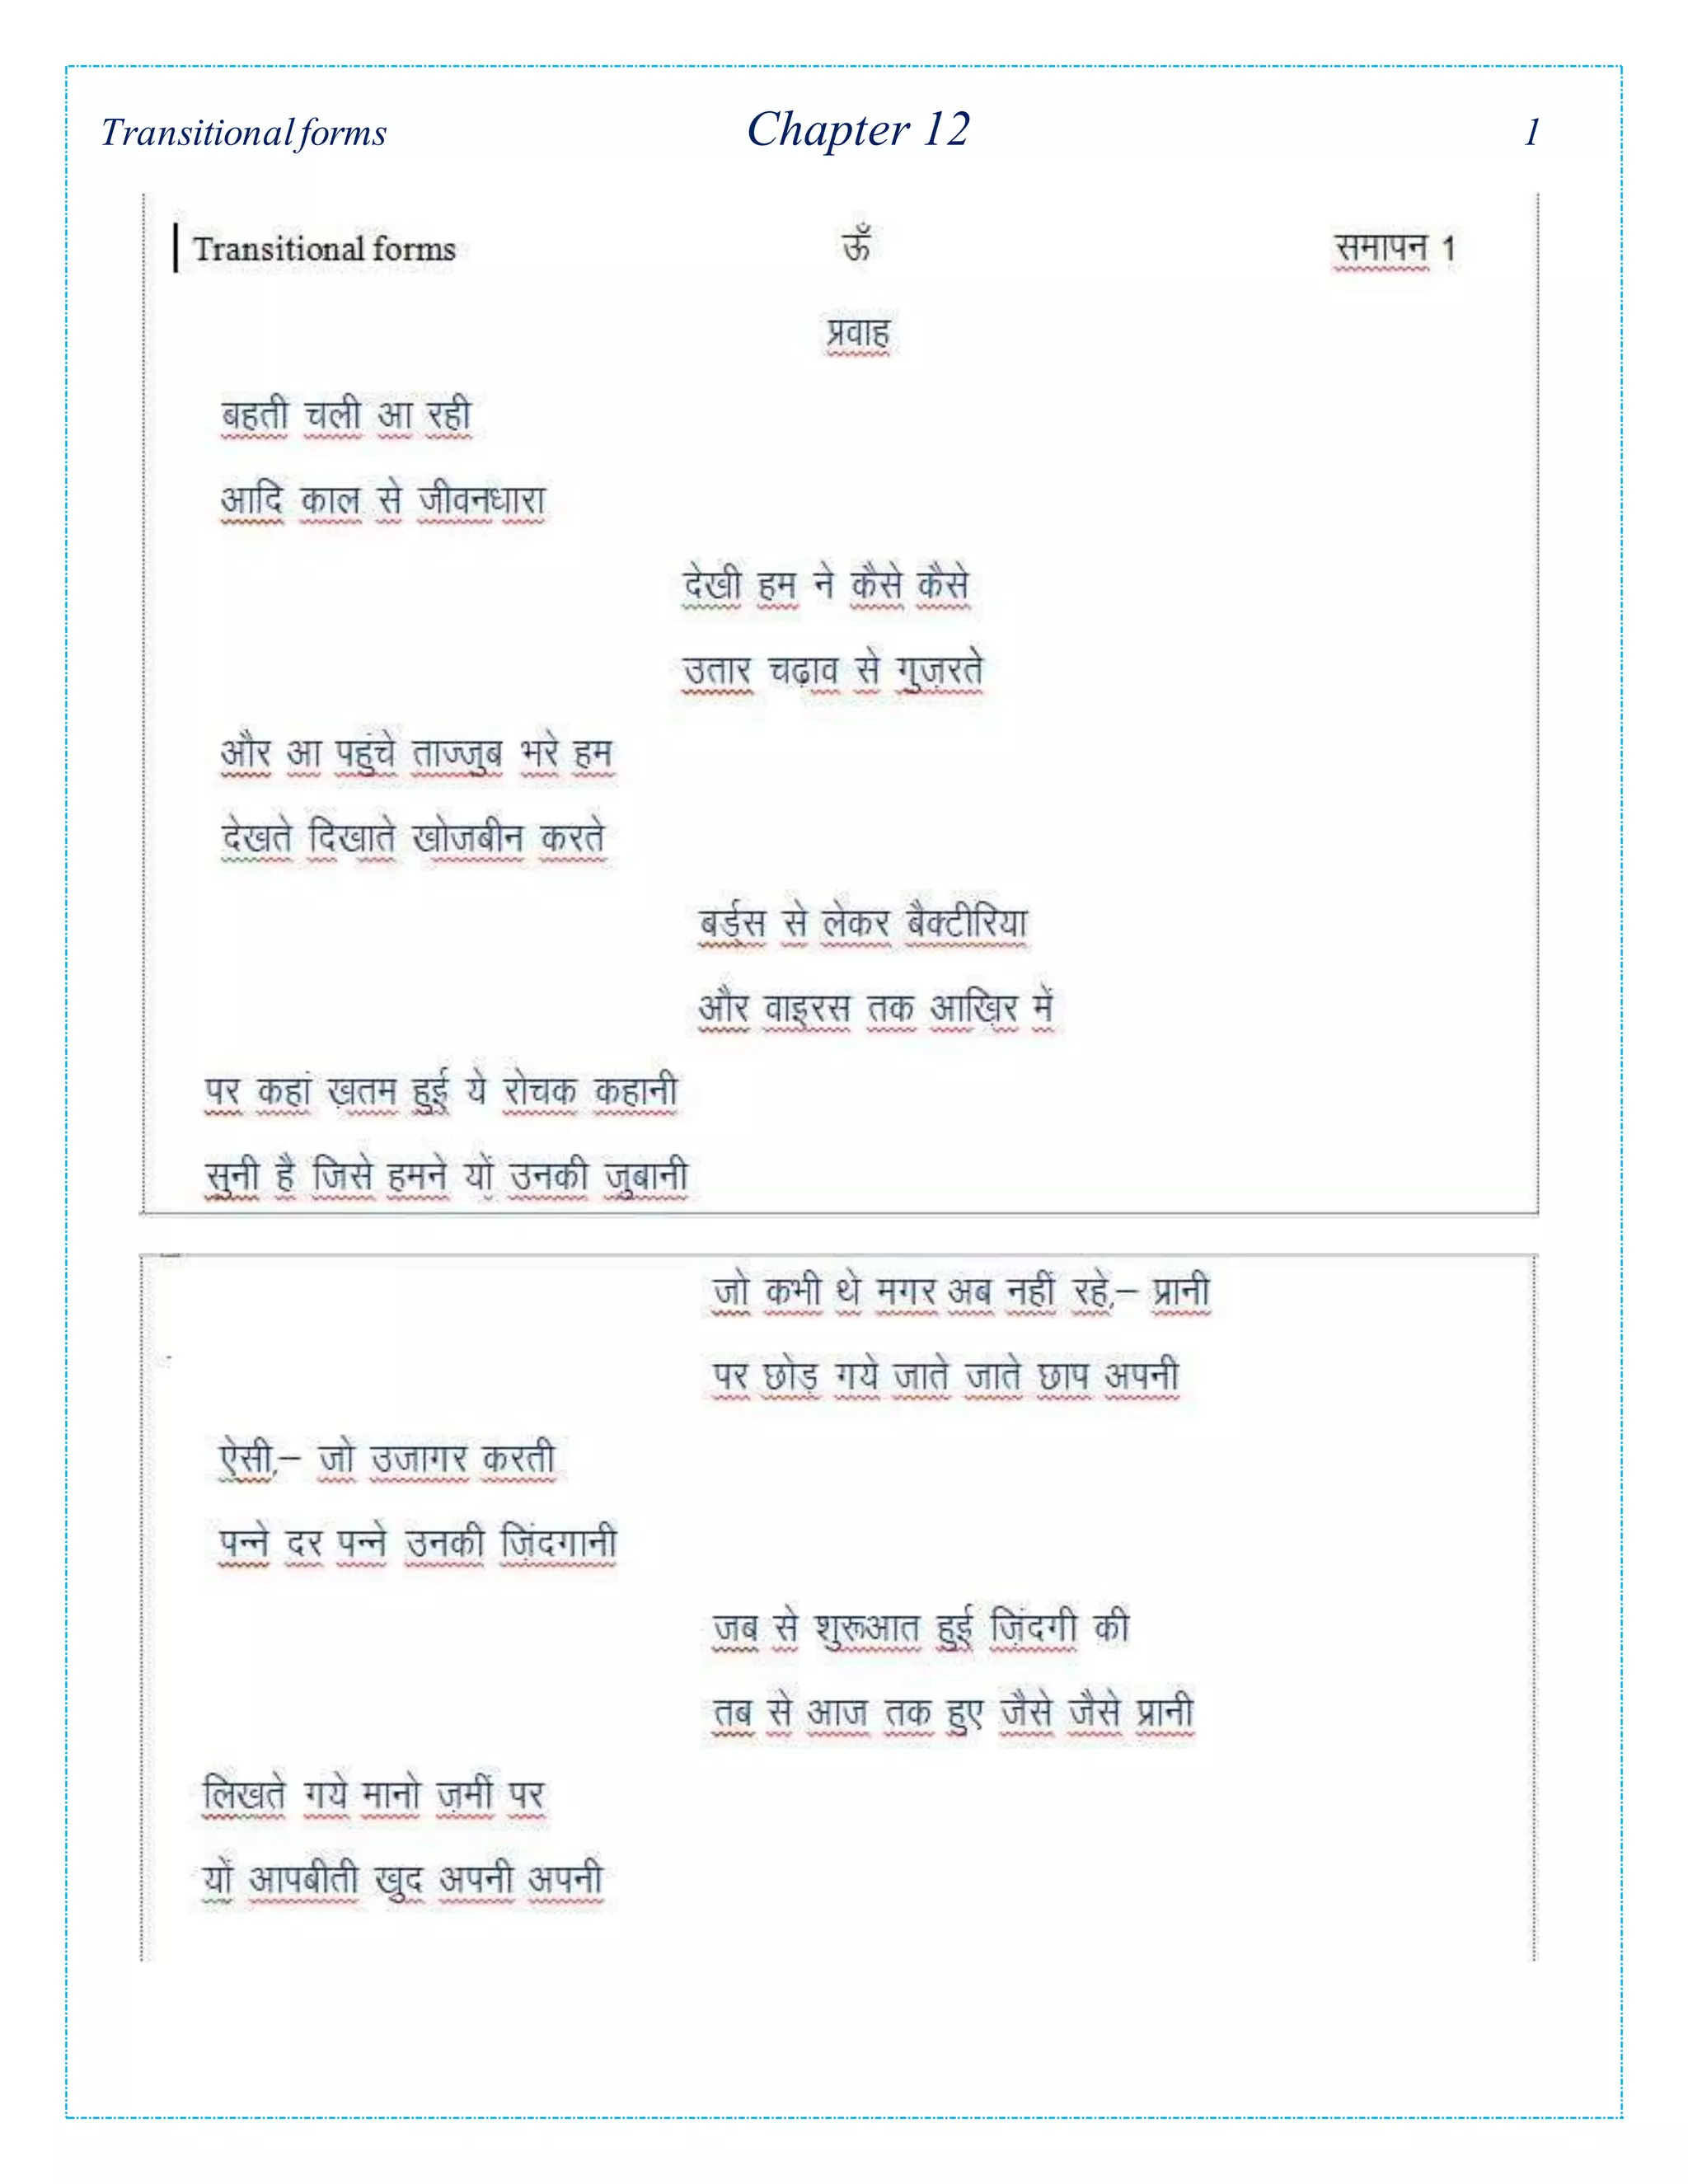 Transitional forms Chapter 12 1
Transitional forms ऊँ समापन 1
प्रवाह
बहती चली आ रही
आदि काल से जीवनधारा
देखी हम ने कैसे कैसे
उतार चढ़ाव से गुज़रते
और आ पहुंचे ताज्जुब भरे हम
देखते दिखाते खोजबीन करते
बर्ड्स से लेकर बैक्टीरिया
और वाइरस तक आख़िर में
पर कहां ख़तम हुई ये रोचक कहानी
सुनी है जिसे हमने यों उनकी जुबानी
जो कभी थे मगर अब नहीं रहे,– प्रानी
पर छोड़ गये जाते जाते छाप अपनी
ऐसी,– जो उजागर करती
पन्ने दर पन्ने उनकी ज़िंदगानी
जब से शुरूआत हुई ज़िंदगी की
तब से आज तक हुए जैसे जैसे प्रानी
लिखते गये मानो ज़मीं पर
यों आपबीती खुद अपनी अपनी